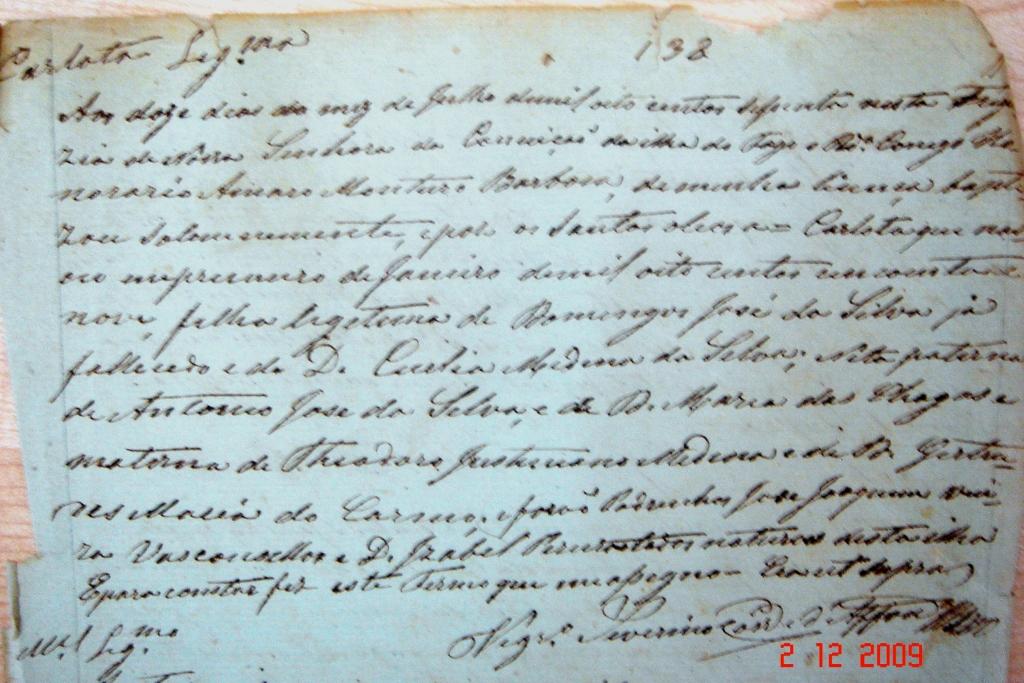 Carlota Leg.ma 138
Aos doze dias do mez de Julho de mil oito centos sesenta nesta Fregue
zia de Nossa Senhora da Conceição da ilha do Fogo o Rd.º Conego Ho
norario Amaro Monteiro Barbosa, de minha licença bapti
zou solemnemente, e pôz os santos oleos a Carlota que nas
ceo em primeiro de Janeiro de mil oito centos cincoenta e
nove, filha legitima de Domingos José da Silva já
fallecido e de D. Medina da Silva; Neta paterna
de Antonio José da Silva, e de D. Maria das Chagas e
materna de Theodoro Justiniano Medina e de D. Gertru-
des Maria do Carmo, e forão Padrinhos José Joaquim Viei-
ra Vasconcellos e D. Izabel todos naturaes desta ilha
E para constar fiz este Termo que me assigno Era ut supra
Leg.mo
Severino
2 12 2009